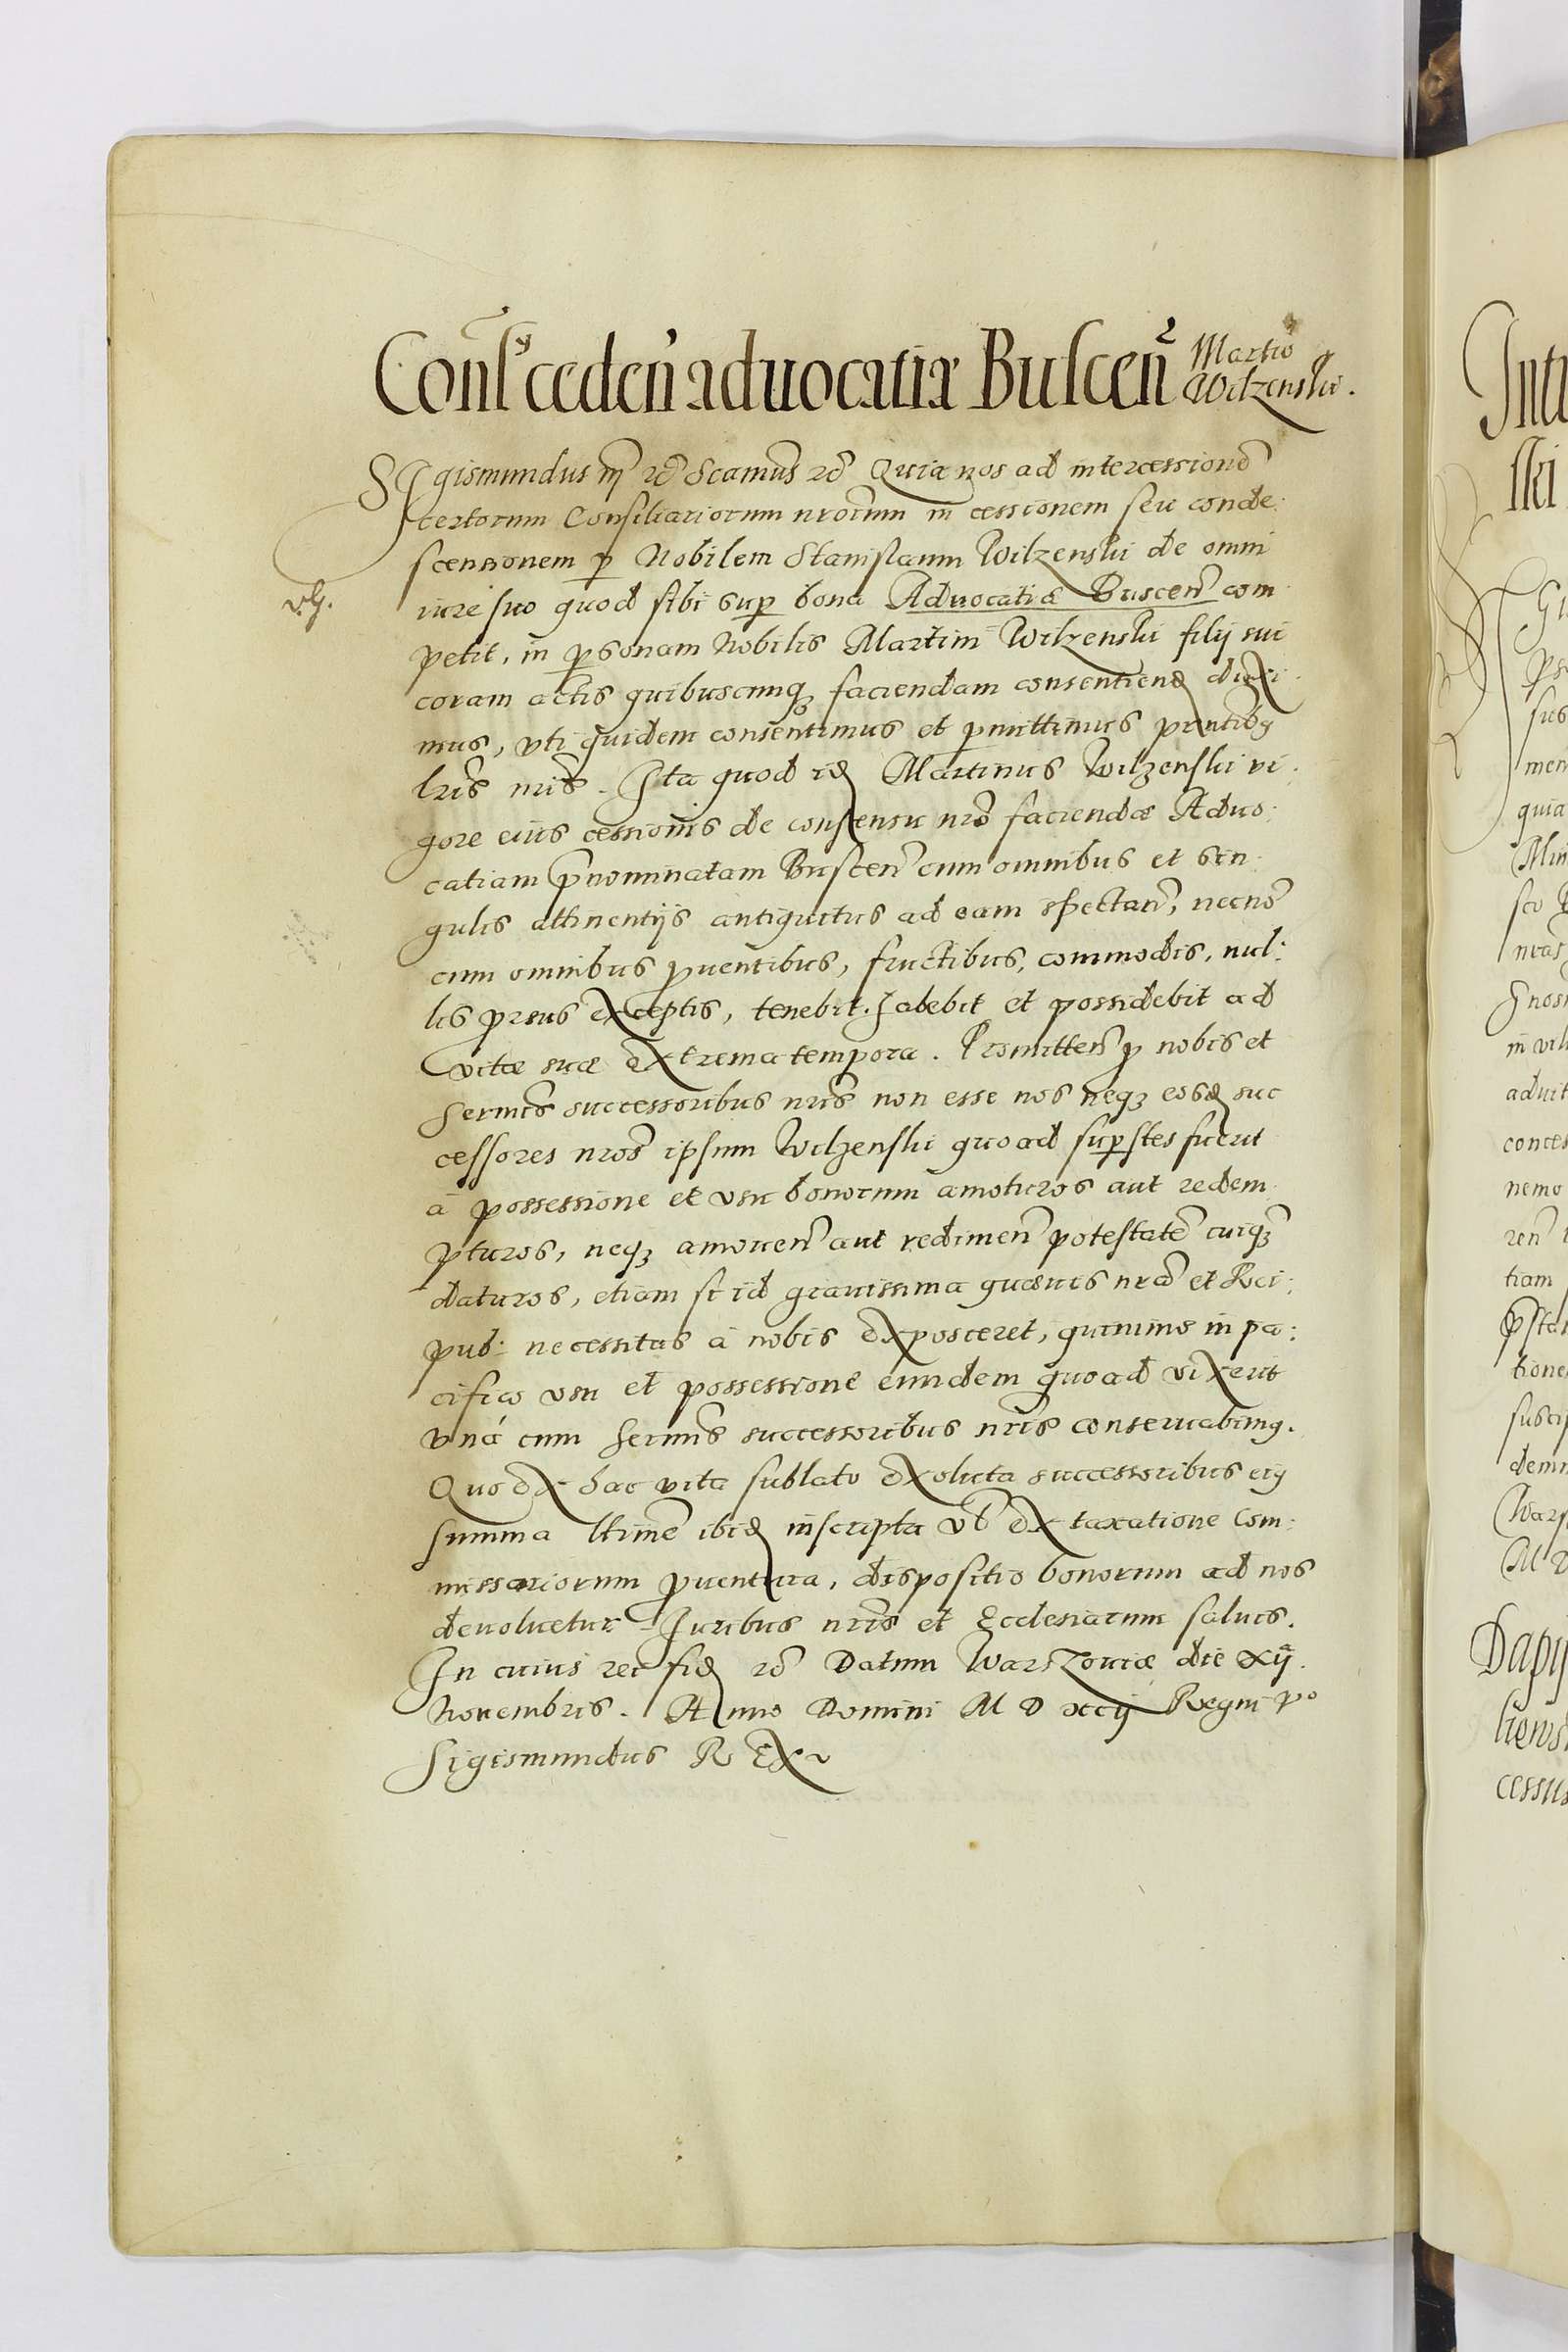 Conss ceden advocatiæ Buscen Martino
Wilzenski.
Sigismundus III etc Scamus etc Quia nos ad intercessione
certorum Consiliariorum nrorum in cessionem seu conde:
scensionem p Nobilem Stanislaum Wilzenski de omni
iure suo quod sibi sup bona Advocatiæ Buscen com
petit, in psonam Nobilis Martini Wilzenski filij sui
coram actis quibuscunq faciendam consentiend duxi
mus, vti quidem consentimus et pmittimus pntibg
lris nris. Ita quod id Martinus Wilzenski vi:
gore eius cessionis de consensu nro faciendæ Aduo:
catiam pnominatam Buscen cum omnibus et sin
gulis attinentijs antiquitus ad eam spectan, necno
cum omnibus puentibus, fructibus, commodis, nul:
lis prsus exceptis, tenebit habebit et possidebit ad
vitæ suæ extrema tempora. Promitten p nobis et
sermis successoribus nris non esse nos neq eosd suc
cessores nros ipsum Wilzenski quoad supstes fuerit
à possessione et vsu bonorum amoturos aut redem
pturos, neq amouen aut redimen potestate cuiq
daturos, etiam si id grauissima quæuis nra et Rei:
pub: necessitas à nobis exposceret, quinimo in pa:
cifico vsu et possessione eundem quoad vixerit
vná cum sermis successoribus nris conseruabimg.
Quo ex hac vita sublato exoluta successoribus eig
summa ltime ibid inscripta vl ex taxatione Com:
missariorum puentura, dispositio bonorum ad nos
deuoluetur Juribus nris et Ecclesiarum saluis.
In cuius rei fid etc Datum Warszouiæ die xij.
Nouembris. Anno Domini M D xcij Regni po
Sigismundus REX